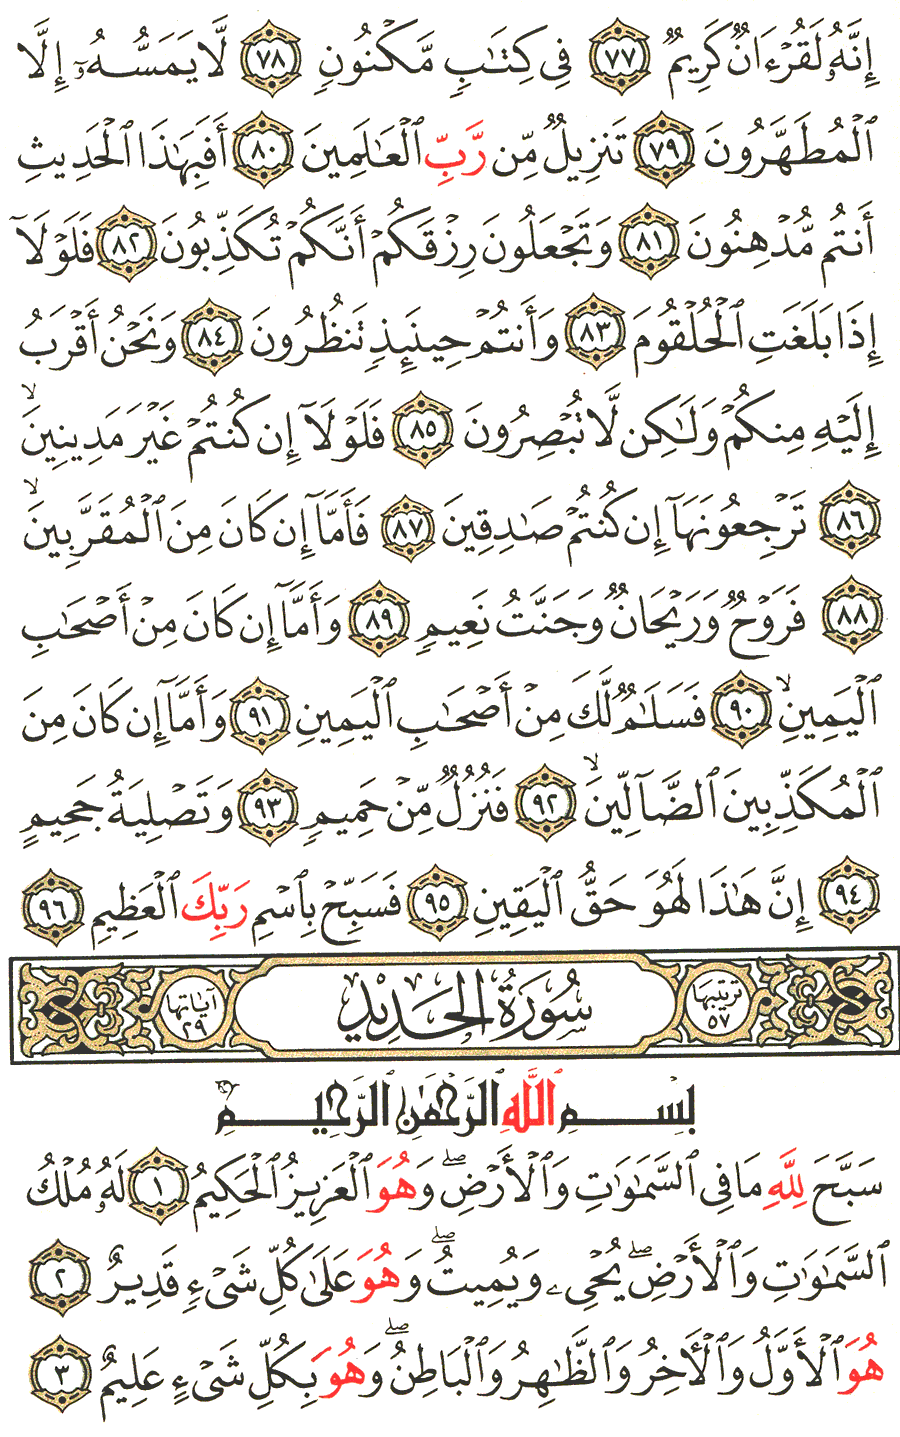 إِنَّهُۥ لَقُرْءَانٌ كَرِيمٌ ٧٧ فِى كِتَٰبٍ مَّكْنُونٍ ٧٨ لَّا يَمَسُّهُۥٓ إِلَّا
ٱلْمُطَهَّرُونَ ٧٩ تَنزِيلٌ مِّن رَّبِّ ٱلْعَٰلَمِينَ ٨٠ أَفَبِهَٰذَا ٱلْحَدِيثِ
أَنتُم مُّدْهِنُونَ ٨١ وَتَجْعَلُونَ رِزْقَكُمْ أَنَّكُمْ تُكَذِّبُونَ ٨٢ فَلَوْلَآ
إِذَا بَلَغَتِ ٱلْحُلْقُومَ ٨٣ وَأَنتُمْ حِينَئِذٍ تَنظُرُونَ ٨٤ وَنَحْنُ أَقْرَبُ
إِلَيْهِ مِنكُمْ وَلَٰكِن لَّا تُبْصِرُونَ ٨٥ فَلَوْلَآ إِن كُنتُمْ غَيْرَ مَدِينِينَۙ
٨٦ تَرْجِعُونَهَآ إِن كُنتُمْ صَٰدِقِينَ ٨٧ فَأَمَّآ إِن كَانَ مِنَ ٱلْمُقَرَّبِينَۙ
٨٨ فَرَوْحٌ وَرَيْحَانٌ وَجَنَّتُ نَعِيمٍ ٨٩ وَأَمَّآ إِن كَانَ مِنْ أَصْحَٰبِ
ٱلْيَمِينِۙ ٩٠ فَسَلَٰمٌ لَّكَ مِنْ أَصْحَٰبِ ٱلْيَمِينِ ٩١ وَأَمَّآ إِن كَانَ مِنَ
ٱلْمُكَذِّبِينَ ٱلضَّآلِّينَۙ ٩٢ فَنُزُلٌ مِّنْ حَمِيمٍ ٩٣ وَتَصْلِيَةُ جَحِيمٍ
٩٤ إِنَّ هَٰذَا لَهُوَ حَقُّ ٱلْيَقِينِ ٩٥ فَسَبِّحْ بِٱسْمِ رَبِّكَ ٱلْعَظِيمِ ٩٦
ترتيبها ٥٧ سُورَةُ الحَدِيدِ آياتها ٢٩
بِسْمِ ٱللَّهِ ٱلرَّحْمَٰنِ ٱلرَّحِيمِ
سَبَّحَ لِلَّهِ مَا فِى ٱلسَّمَٰوَٰتِ وَٱلْأَرْضِۖ وَهُوَ ٱلْعَزِيزُ ٱلْحَكِيمُ ١ لَهُۥ مُلْكُ
ٱلسَّمَٰوَٰتِ وَٱلْأَرْضِۖ يُحْىِۦ وَيُمِيتُۖ وَهُوَ عَلَىٰ كُلِّ شَىْءٍ قَدِيرٌ ٢
هُوَ ٱلْأَوَّلُ وَٱلْأَخِرُ وَٱلظَّٰهِرُ وَٱلْبَاطِنُۖ وَهُوَ بِكُلِّ شَىْءٍ عَلِيمٌ ٣